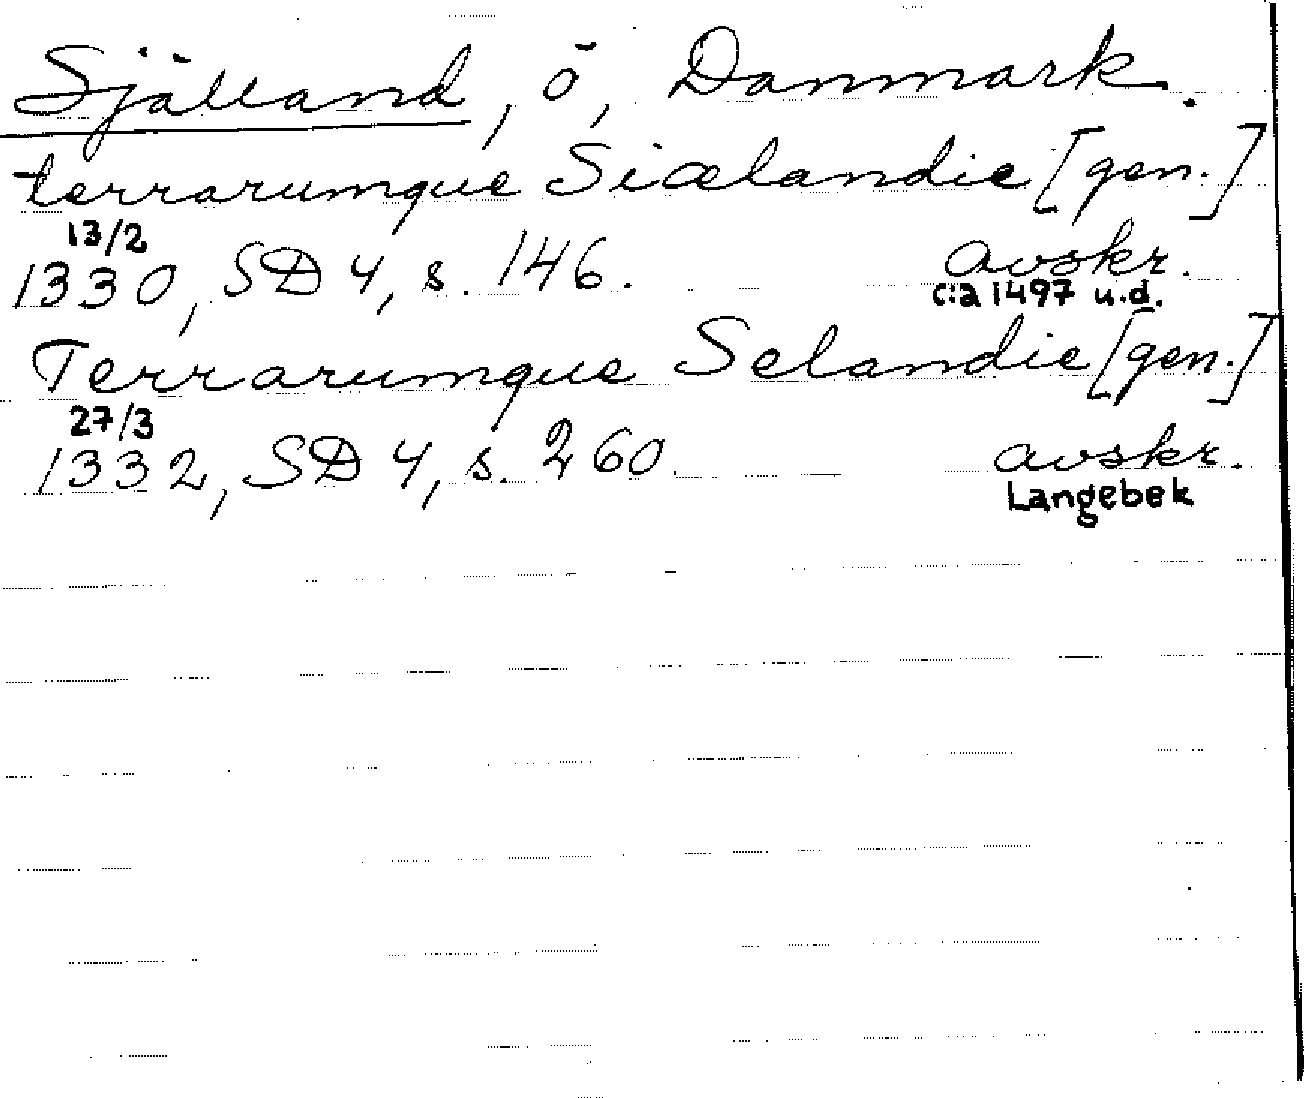 Själland, ö, Danmark.
terrarumque Siælandie [gen.]
13/2
1330, SD 4, s. 146. avskr.
c:a 1497 u.d.
Terrarumque Selandie [gen.]
27/3
1332, SD 4, s. 260 avskr.
Langebek